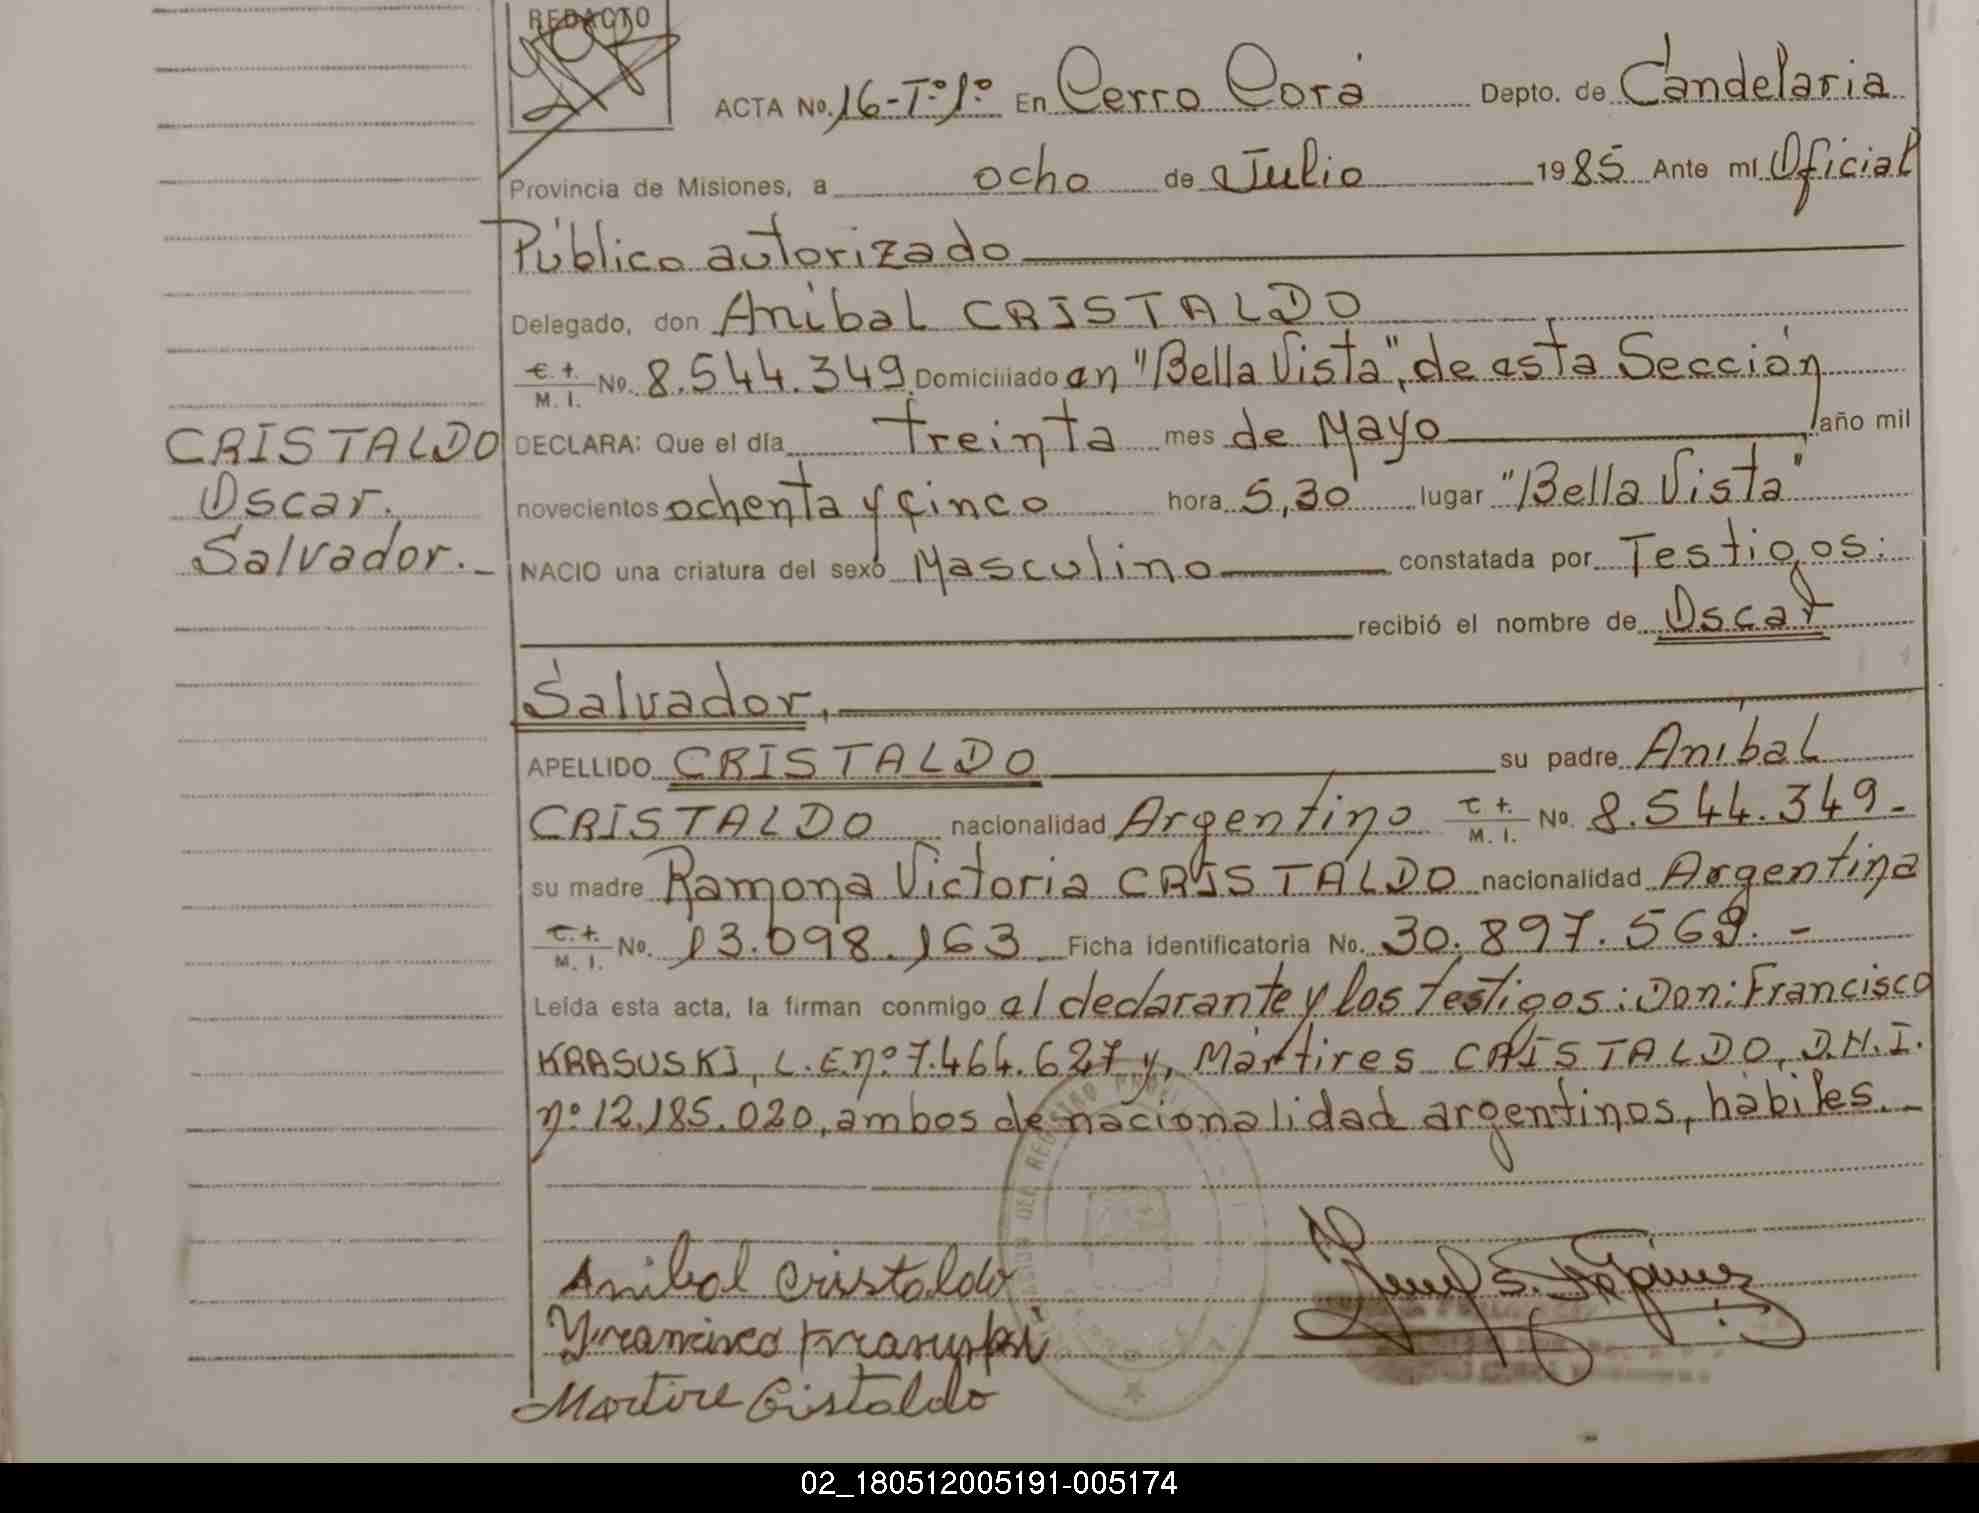 REDACTO
ACTA No. 16-Tº1º En Cerro Corá Depto. de Candelaria
Provincia de Misiones, a ocho de Julio 1985 Ante mí Oficial
Público autorizado
Delegado, don Anibal CRISTALDO
M. I. No. 8.544.349 Domiciliado en "Bella Vista", de esta Sección
DECLARA: Que el día treinta mes de Mayo año mil
novecientos ochenta y cinco hora 5,30 lugar "Bella Vista"
CRISTALDO
Oscar.
Salvador.-
NACIO una criatura del sexo Masculino constatada por Testigos:
recibió el nombre de Oscar
Salvador,
APELLIDO CRISTALDO su padre Anibal
CRISTALDO nacionalidad Argentino M. I. No. 8.544.349-
su madre Ramona Victoria CRISTALDO nacionalidad Argentina
M. I. No. 13.098.163 Ficha identificatoria No. 30.897.569.-
Leída esta acta, la firman conmigo el declarante y los testigos: Don: Francisco
KRASUSKI, L.E.nº 7.464.627 y, Mártires CRISTALDO, D.N.I.
nº 12.185.020, ambos de nacionalidad argentinos, hábiles.-
Anibal Cristaldo
Francisco Krasuski
Martire Cristaldo
02_180512005191-005174